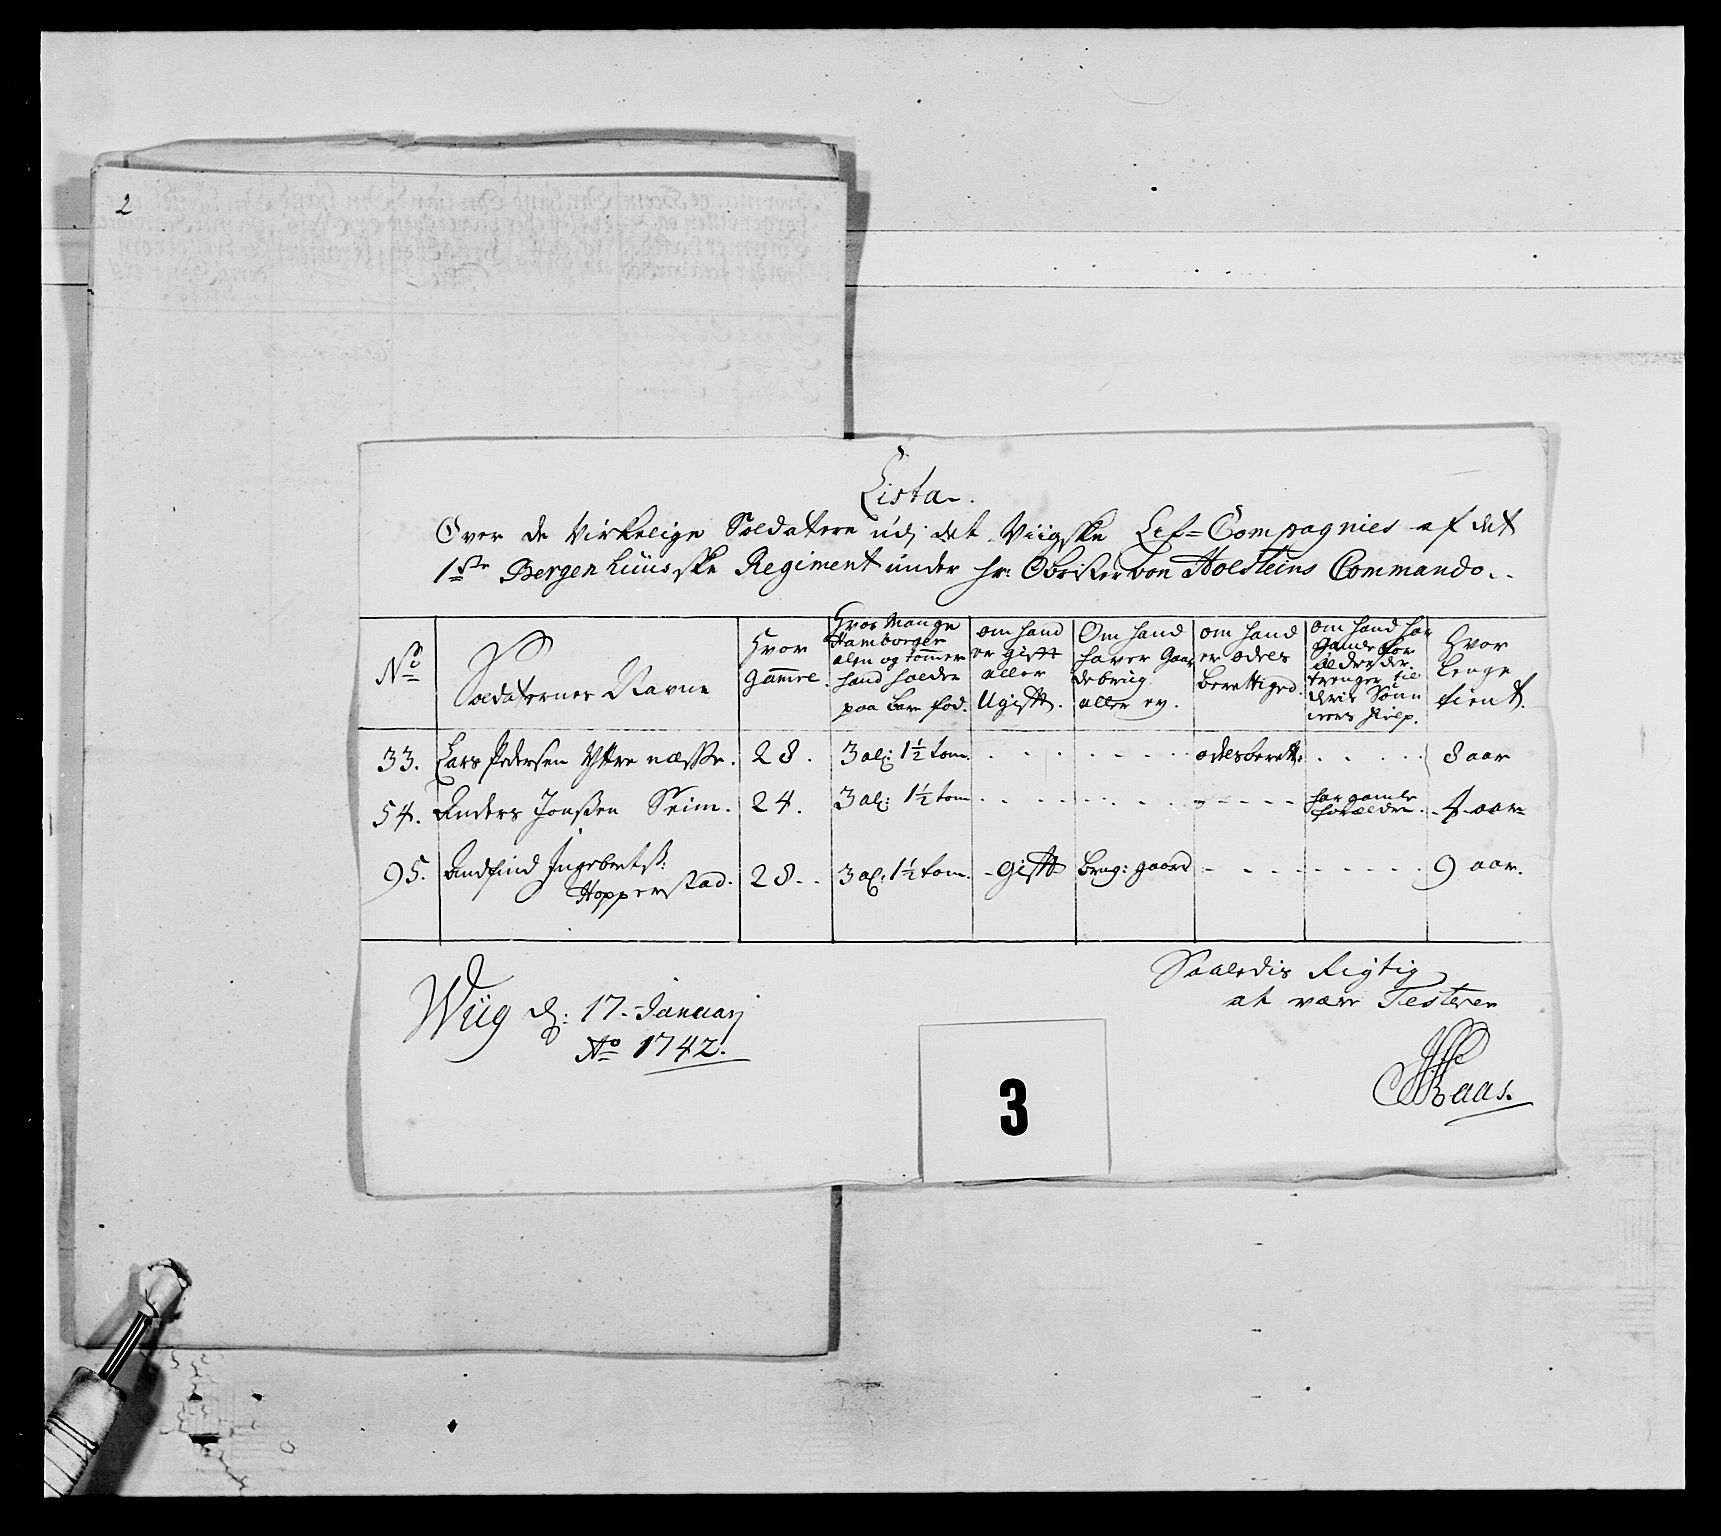 2
Lista.
Over de Virkelige Soldatere udj det Viigske Lif=Compagnies af det
1ste Bergenhuusske Regiment under Hr: Obrister von Holsteins Commando.
No
Soldaternes Navne
Hvor
gamle.
Hvor Mange
Hamborger
alen og tommer
hand holder
paa bare fod.
om hand
er gift
eller
Ugift.
Om hand
haver Gaar
debrug
eller ey.
om hand
er odels
berettiged.
om hand har
gamle for
ældre der
trenger til
deris Sønn
ners Hielp.
Hvor
lenge
tient.
33. Lars Pedersen Yttre næsse. 28. 3 al: 1½ tom. odelsberett: 8 aar
54. Anders Jonssen Seim. 24. 3 al: 1½ tom har gamle
forældre. 4 aar
95. Andfind Ingebretss:
Hopperstad. 28. 3 al: 1½ tom. Gift brug: gaard 9 aar.
Wiig d: 17. Januarj
Ao 1742.
Saaledis Rigtig
at være Testerer
Haas.
3